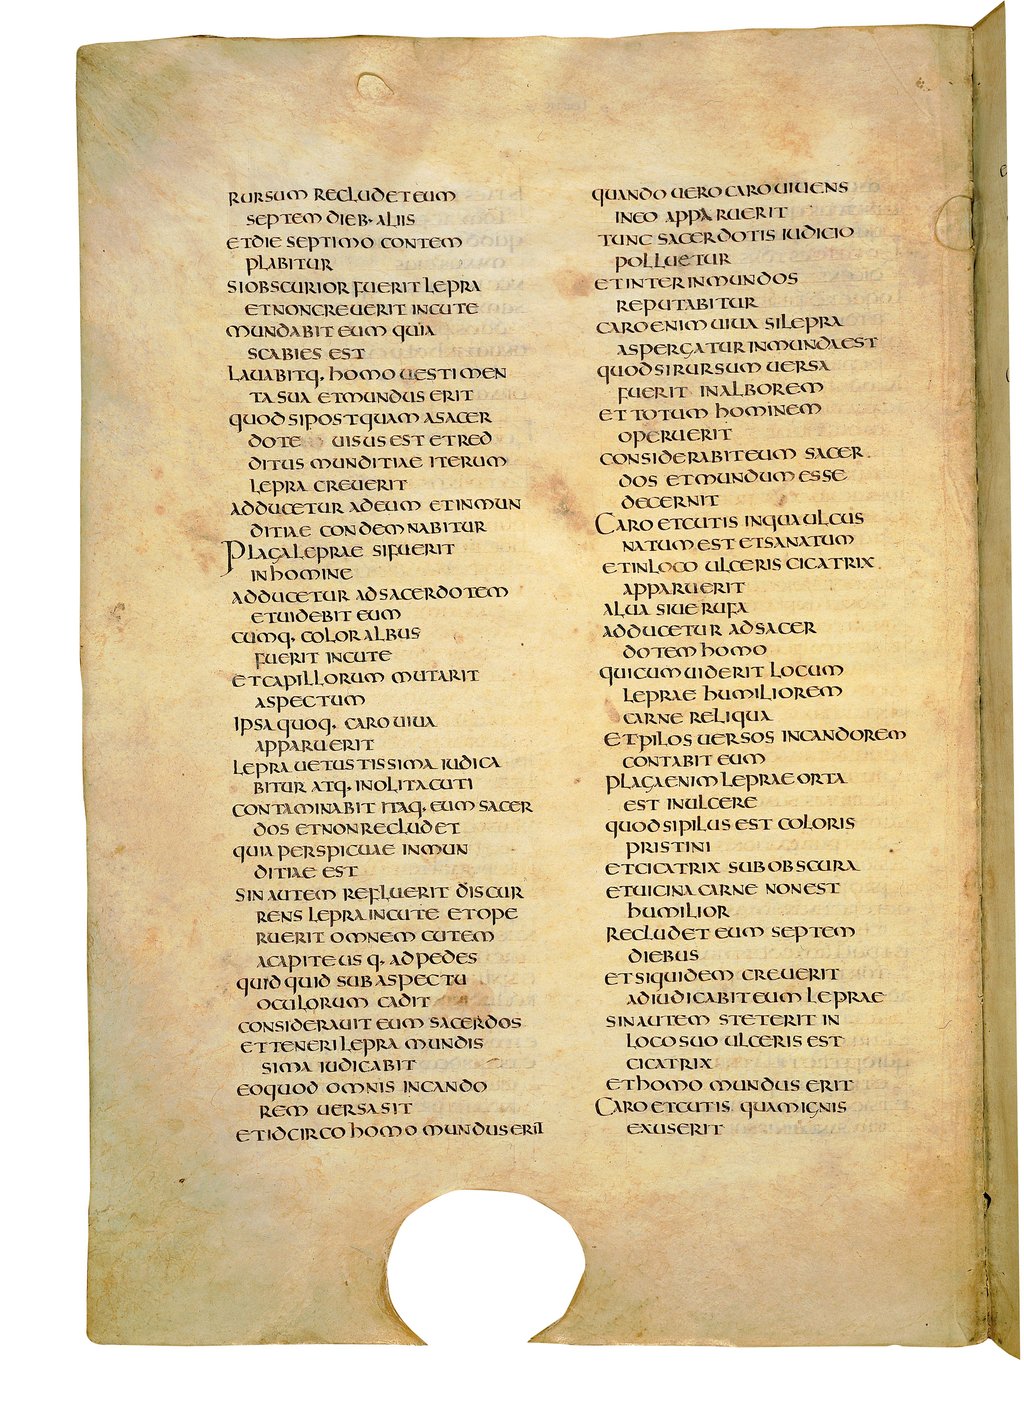 RURSUM RECLUDET EUM
SEPTEM DIEB· ALIIS
ET DIE SEPTIMO CONTEM
PLABITUR
SI OBSCURIOR FUERIT LEPRA
ET NON CREUERIT IN CUTE
MUNDABIT EUM QUIA
SCABIES EST
LAUABITQ· HOMO UESTIMEN
TA SUA ET MUNDUS ERIT
QUOD SI POSTQUAM A SACER
DOTE UISUS EST ET RED
DITUS MUNDITIAE ITERUM
LEPRA CREUERIT
ADDUCETUR AD EUM ET INMUN
DITIAE CONDEMNABITUR
PLAGA LEPRAE SI FUERIT
IN HOMINE
ADDUCETUR AD SACERDOTEM
ET UIDEBIT EUM
CUMQ· COLOR ALBUS
FUERIT IN CUTE
ET CAPILLORUM MUTARIT
ASPECTUM
IPSA QUOQ· CARO UIUA
APPARUERIT
LEPRA UETUSTISSIMA IUDICA
BITUR ATQ· INOLITA CUTI
CONTAMINABIT ITAQ· EUM SACER
DOS ET NON RECLUDET
QUIA PERSPICUAE INMUN
DITIAE EST
SIN AUTEM REFLUERIT DISCUR
RENS LEPRA IN CUTE ET OPE
RUERIT OMNEM CUTEM
A CAPITE USQ· AD PEDES
QUIDQUID SUB ASPECTU
OCULORUM CADIT
CONSIDERAUIT EUM SACERDOS
ET TENERI LEPRA MUNDIS
SIMA IUDICABIT
EO QUOD OMNIS IN CANDO
REM UERSA SIT
ET IDCIRCO HOMO MUNDUS ERIT
QUANDO UERO CARO UIUENS
IN EO APPARUERIT
TUNC SACERDOTIS IUDICIO
POLLUETUR
ET INTER INMUNDOS
REPUTABITUR
CARO ENIM UIUA SI LEPRA
ASPERGATUR INMUNDA EST
QUOD SI RURSUM UERSA
FUERIT IN ALBOREM
ET TOTUM HOMINEM
OPERUERIT
CONSIDERABIT EUM SACER
DOS ET MUNDUM ESSE
DECERNIT
CARO ET CUTIS IN QUA ULCUS
NATUM EST ET SANATUM
ET IN LOCO ULCERIS CICATRIX
APPARUERIT
ALUA SIUE RUFA
ADDUCETUR AD SACER
DOTEM HOMO
QUI CUM UIDERIT LOCUM
LEPRAE HUMILIOREM
CARNE RELIQUA
ET PILOS UERSOS IN CANDOREM
CONTABIT EUM
PLAGA ENIM LEPRAE ORTA
EST IN ULCERE
QUOD SI PILUS EST COLORIS
PRISTINI
ET CICATRIX SUBOBSCURA
ET UICINA CARNE NON EST
HUMILIOR
RECLUDET EUM SEPTEM
DIEBUS
ET SIQUIDEM CREUERIT
ADIUDICABIT EUM LEPRAE
SIN AUTEM STETERIT IN
LOCO SUO ULCERIS EST
CICATRIX
ET HOMO MUNDUS ERIT
CARO ET CUTIS QUAM IGNIS
EXUSERIT